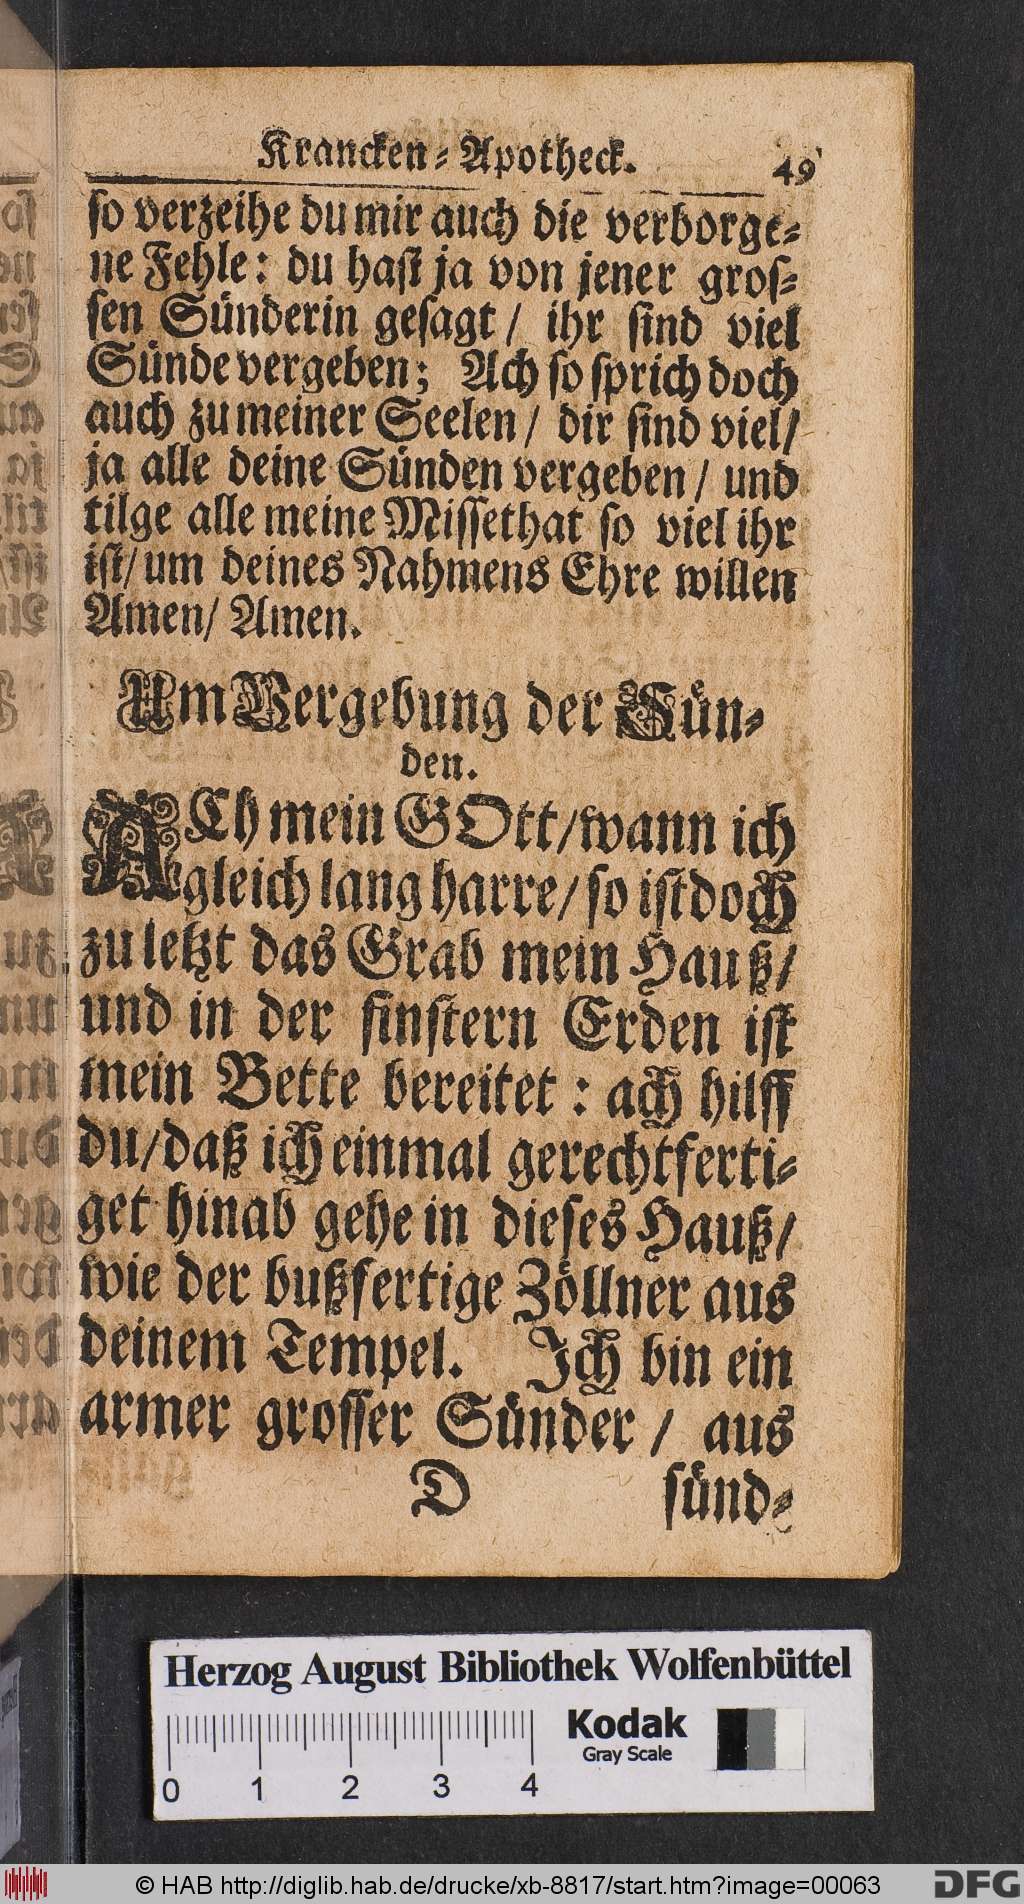 Krancken-Apotheck. 49
so verzeihe du mir auch die verborge-
ne Fehle: du hast ja von jener gros-
sen Sünderin gesagt / ihr sind viel
Sünde vergeben; Ach so sprich doch
auch zu meiner Seelen / dir sind viel /
ja alle deine Sünden vergeben / und
tilge alle meine Missethat so viel ihr
ist / um deines Nahmens Ehre willen
Amen / Amen.
Um Vergebung der Sün-
den.
ACh mein GOtt / wann ich
gleich lang harre / so ist doch
zu letzt das Grab mein Hauß /
und in der finstern Erden ist
mein Bette bereitet: ach hilff
du / daß ich einmal gerechtferti-
get hinab gehe in dieses Hauß /
wie der bußfertige Zöllner aus
deinem Tempel. Ich bin ein
armer grosser Sünder / aus
D sünd-
Herzog August Bibliothek Wolfenbüttel
Kodak
Gray Scale
0 1 2 3 4
© HAB http://diglib.hab.de/drucke/xb-8817/start.htm?image=00063
DFG